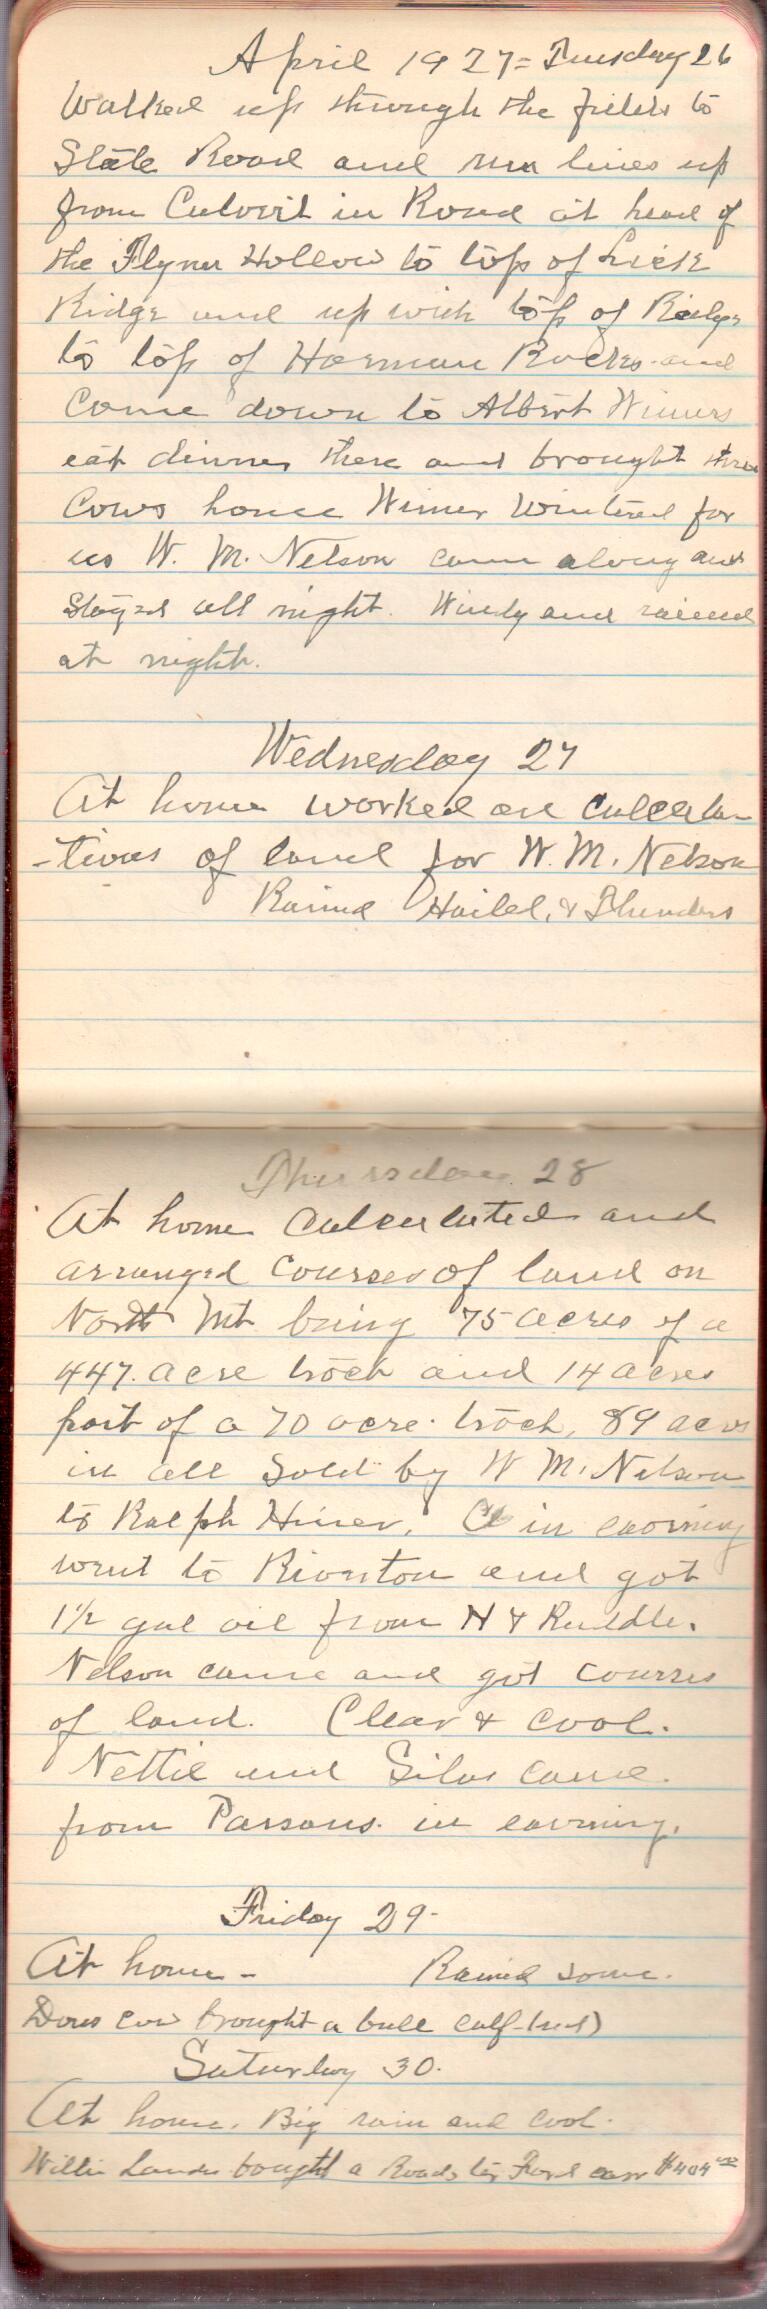 April 1927 = Tuesday 26
Walked up through the fields to
State Road and run lines up
from Culvert in Road at head of
the Flynn Hollow to top of Lick
Ridge and up with top of Ridge
to top of Harman Rocks and
Come down to Albert Wimers
eat dinner there and brought three
Cows home Wimer Wintered for
us W. M. Nelson came along and
Stayed all night. Windy and rained
at night.
Wednesday 27
At home worked on Calcula-
-tions of land for W. M. Nelson
Rained Hailed, & Thunders
Thursday 28
At home Calculated and
arranged Courses of land on
North Mt being 75 acres of a
447. acre track and 14 acres
part of a 70 acre track, 89 acres
in all Sold by W M. Nelson
to Ralph Hiner. in evening
went to Riverton and got
1½ gal oil from H & Ruddle.
Nelson came and got courses
of land. Clear & cool.
Nettie and Silas came
from Parsons in evening.
Friday 29-
At home - Rained some.
cow brought a bull calf (red)
Saturday 30.
At home. Big rain and cool.
Willie Landes bought a Roadster Ford car $404